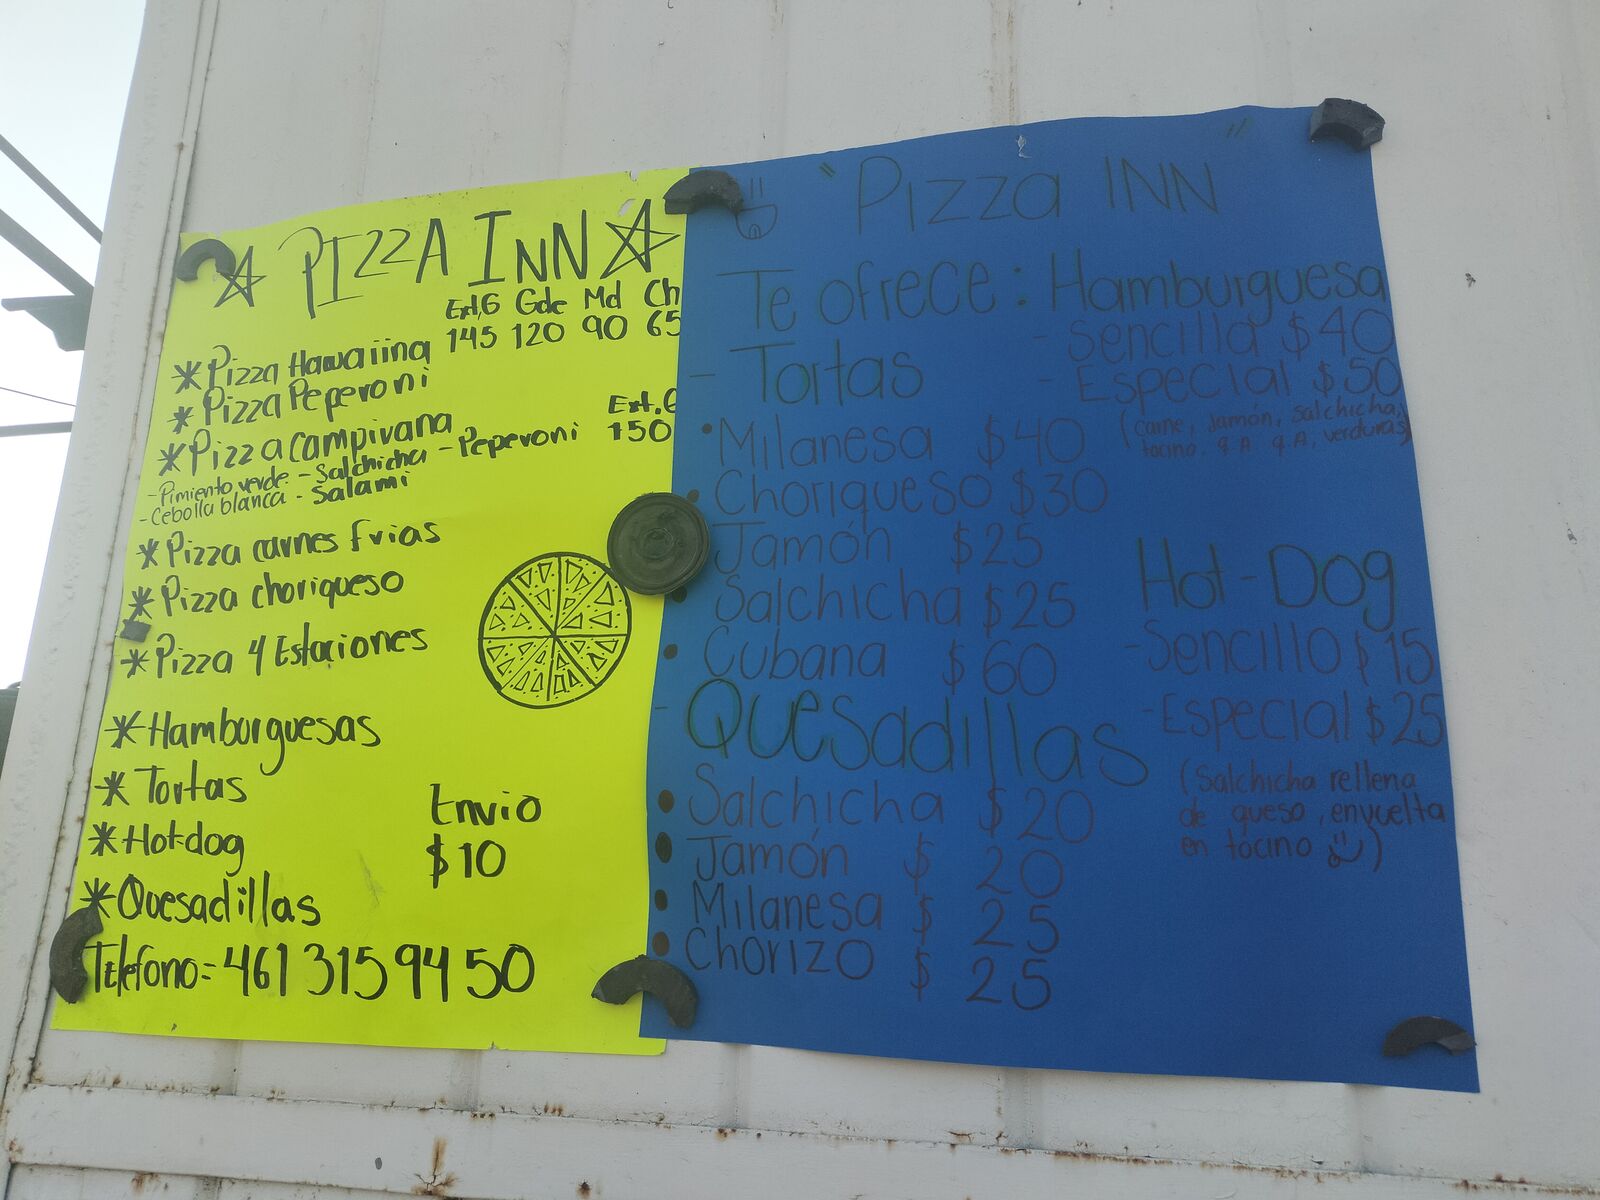 PIZZA INN
Ext,G Gde Md Ch
145 120 90 65
* Pizza Hawaiina
* Pizza Peperoni
* Pizza campirana
Ext.G
150
- Pimiento verde - Salchicha - Peperoni
- Cebolla blanca - Salami
* Pizza carnes frias
* Pizza choriqueso
* Pizza 4 Estaciones
* Hamburguesas
* Tortas
* Hot-dog
* Quesadillas
Envio
$10
Telefono= 461 315 94 50
"Pizza INN"
Te ofrece:
- Tortas
• Milanesa $40
• Choriqueso $30
Jamón $25
• Salchicha $25
• Cubana $60
- Quesadillas
• Salchicha $20
• Jamón $ 20
• Milanesa $ 25
• Chorizo $ 25
Hamburguesa
- Sencilla $40
- Especial $50
(carne, Jamón, salchicha,
tocino, q.A q.A, verduras)
Hot-Dog
- Sencillo $15
- Especial $25
(Salchicha rellena
de queso, envuelta
en tocino)